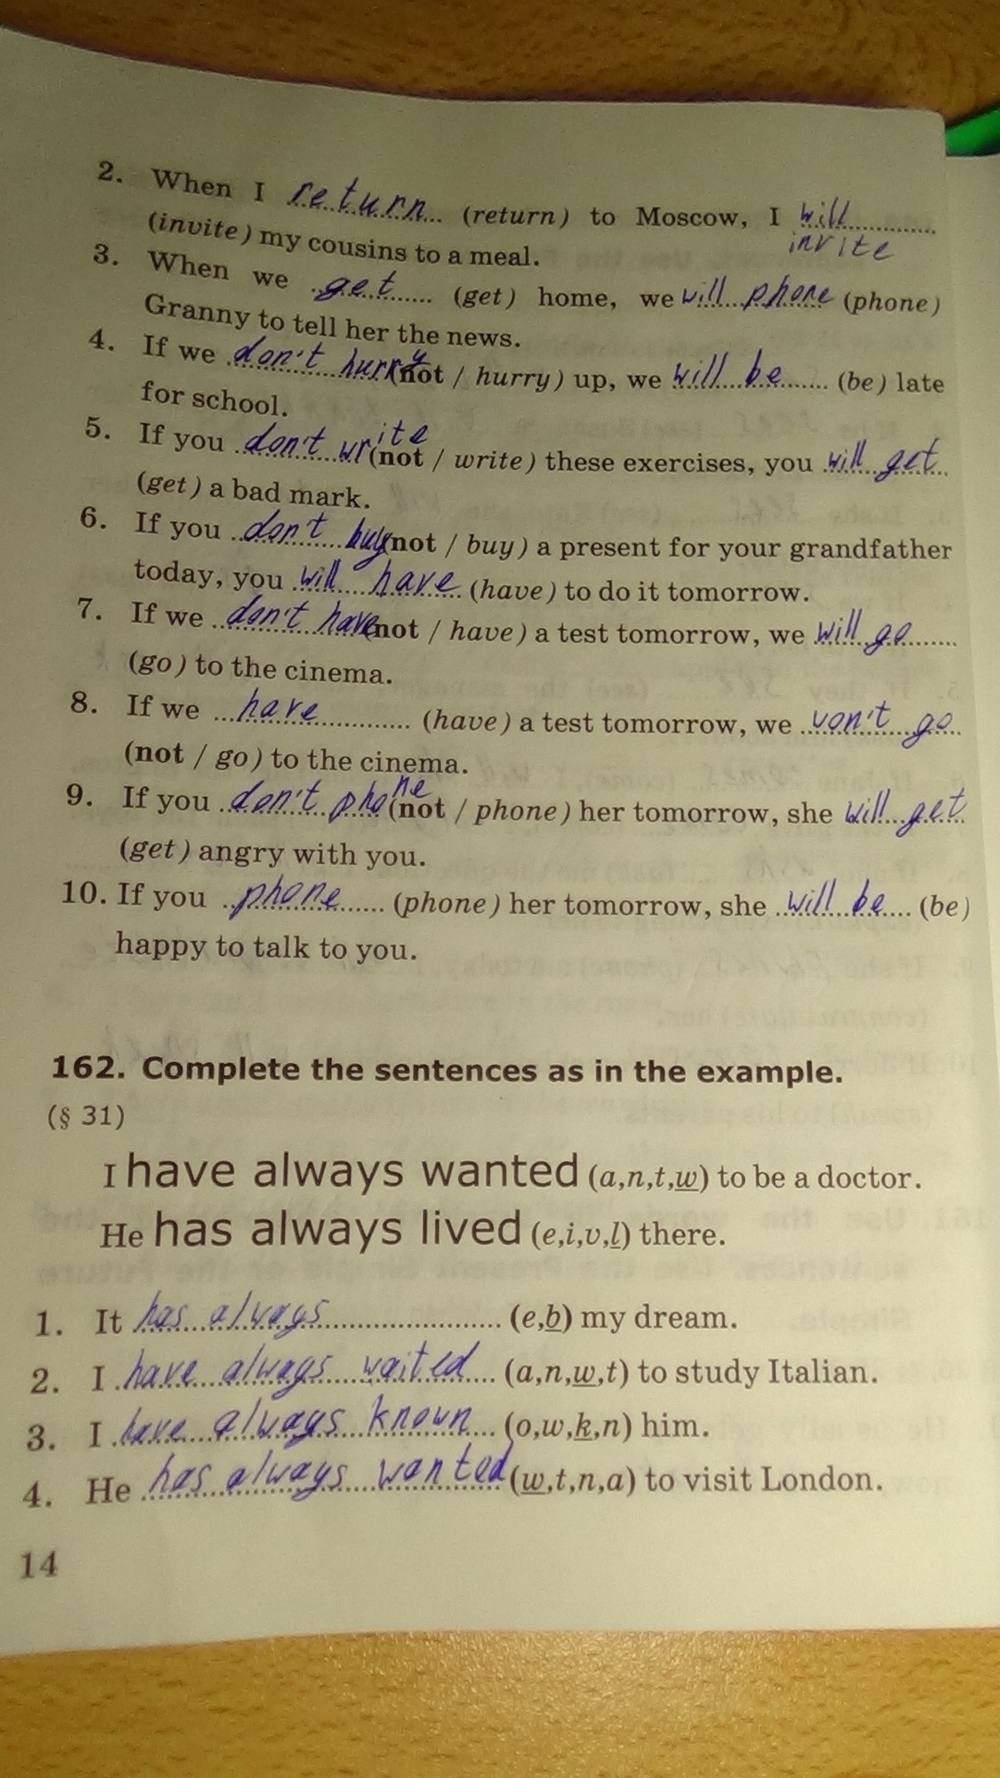 2. When I return (return) to Moscow, I will
invite
(invite) my cousins to a meal.
3. When we get (get) home, we will phone (phone)
Granny to tell her the news.
4. If we don't hurry (not / hurry) up, we will be (be) late
for school.
5. If you don't write (not / write) these exercises, you will get
(get) a bad mark.
6. If you don't buy (not / buy) a present for your grandfather
today, you will have (have) to do it tomorrow.
7. If we don't have (not / have) a test tomorrow, we will go
(go) to the cinema.
8. If we have (have) a test tomorrow, we von't go
(not / go) to the cinema.
9. If you don't phone (not / phone) her tomorrow, she will get
(get) angry with you.
10. If you phone (phone) her tomorrow, she will be (be)
happy to talk to you.
162. Complete the sentences as in the example.
(§ 31)
I have always wanted (a,n,t,w) to be a doctor.
He has always lived (e,i,v,l) there.
1. It has always (e,b) my dream.
2. I have always waited (a,n,w,t) to study Italian.
3. I have always known (o,w,k,n) him.
4. He has always wanted (w,t,n,a) to visit London.
14